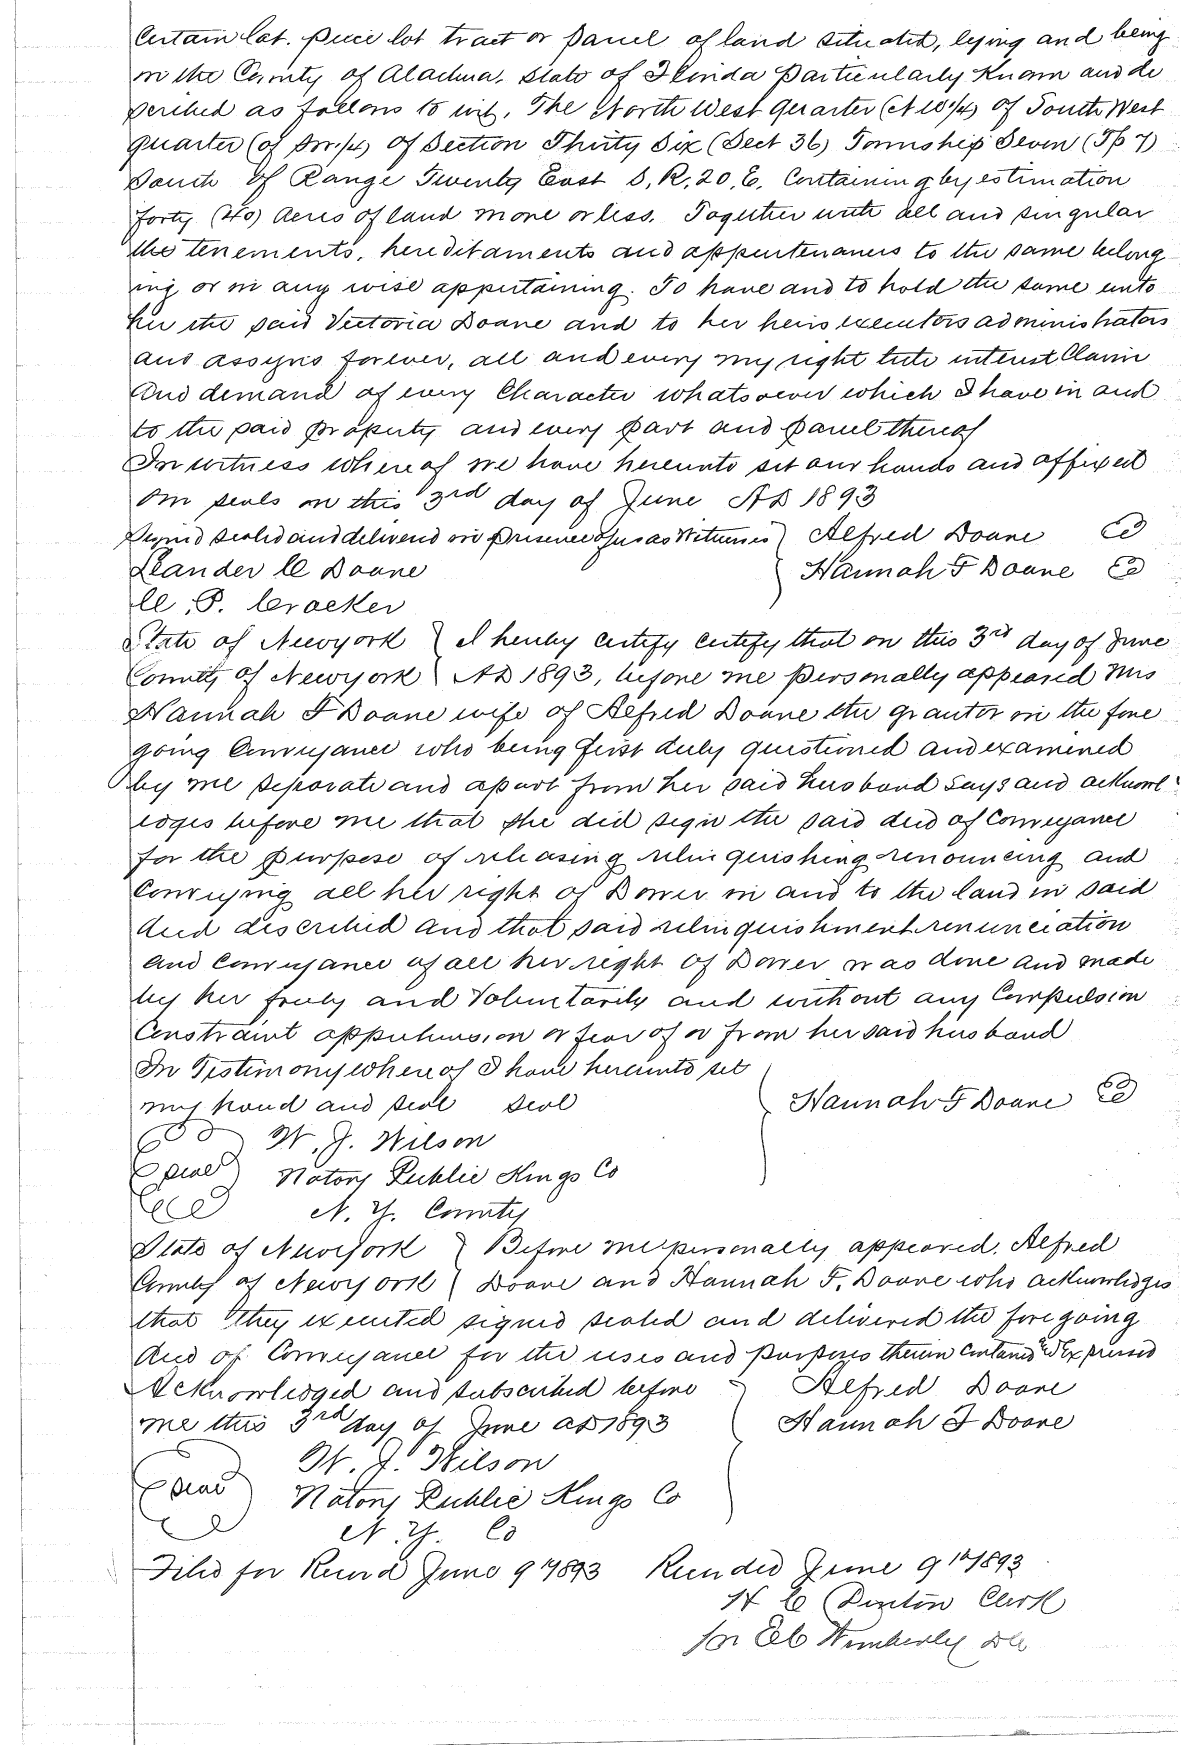 Certain lot. piece lot tract or parcel of land situated, lying and being
in the County of Alachua. State of Florida particularly Known and de
scribed as follows to wit, The North West quarter (N W 1/4) of South West
quarter (of SW 1/4) of Section Thirty Six (Sect 36) Township Seven (Tp 7)
South of Range Twenty East S, R, 20, E, Containing by estimation
forty (40) Acres of land more or less. Together with all and singular
the tenements, hereditaments and appurtenances to the same belong
ing or in any wise appertaining. To have and to hold the same unto
her the said Victoria Doane and to her heirs executors administrators
and assigns forever, all and every my right title interest Claim
And demand of every Character whatsoever which I have in and
to the said property and every part and parcel thereof
In witness whereof we have hereunto set our hands and affixed
our seals on this 3rd day of June AD 1893
Signed sealed and delivered in presence of us as Witnesses } Alfred Doane
Leander C Doane } Hannah F Doane
C. P. Crocker
State of Newyork } I hereby certify certify that on this 3rd day of June
County of Newyork } AD 1893, before me personally appeared Mrs
Hannah F Doane wife of Alfred Doane the grantor in the fore
going Conveyance who being first duly questioned and examined
by me separate and apart from her said husband says and acknowl
edges before me that she did sign the said deed of Conveyance
for the purpose of releasing relinquishing renouncing and
Conveying all her right of Dower in and to the land in said
deed described and that said relinquishment renunciation
and Conveyance of all her right of Dower was done and made
by her freely and Voluntarily and without any Compulsion
Constraint apprehension or fear of or from her said husband
In Testimony whereof I have hereunto set
my hand and seal seal } Hannah F Doane
W. J. Wilson
(seal) Notary Public Kings Co
N. Y. County
State of Newyork } Before me personally appeared. Alfred
County of Newyork } Doane and Hannah F. Doane who acknowledges
that they executed signed sealed and delivered the foregoing
deed of Conveyance for the uses and purposes therein contained & Expressed
Acknowledged and subscribed before } Alfred Doane
me this 3rd day of June AD 1893 Hannah F Doane
W. J. Wilson
(seal) Notary Public Kings Co
N. Y. Co
Filed for Record June 9 1893 Recorded June 9th 1893
H C Denton Clerk
Wimberly DC